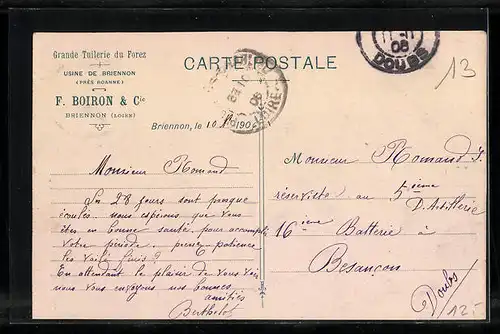 Grande Tuilerie du Forez
USINE DE BRIENNON
(PRÈS ROANNE)
F. BOIRON & Cie
BRIENNON (LOIRE)
CARTE POSTALE
11 -11
06
DOUBS
13
LOIRE
Briennon, le 10 190
Monsieur Romand
Les 28 jours sont presque
écoulés nous espérons que vous
êtes en bonne santé, pour accomplir
votre période. prenez patience
les voilà finis ?
En attendant le plaisir de vous voir
nous vous envoyons nos bonnes
amitiés
Berthelot
Monsieur Romand J.
réserviste au 5ième
D'Artillerie
16ième Batterie à
Besançon
Doubs
12,-